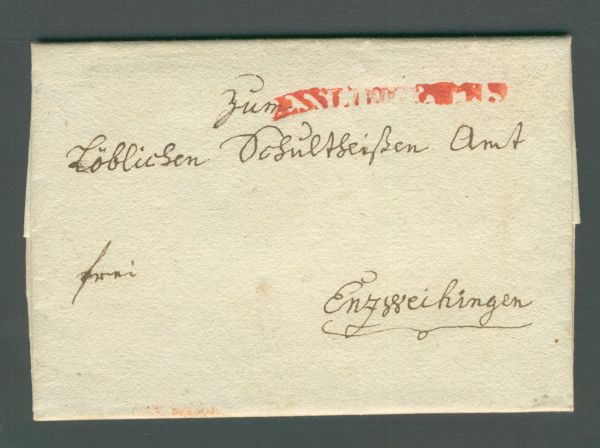 Zum
Löblichen Schultheißen Amt
frei
Enzweihingen